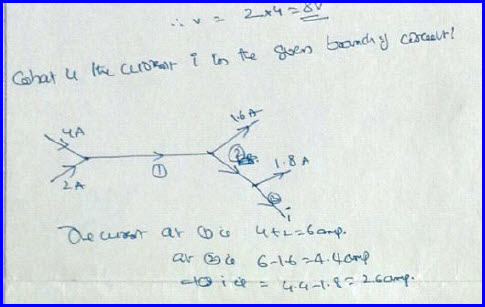 ∴ v = 2×4 = 8V
What is the current i in the given branch of circuit?
4A
1.6A
2A
①
②
1.8A
i
The current at ① is 4+2=6amp.
at ② is 6-1.6=4.4amp
i is = 4.4-1.8=2.6amp.